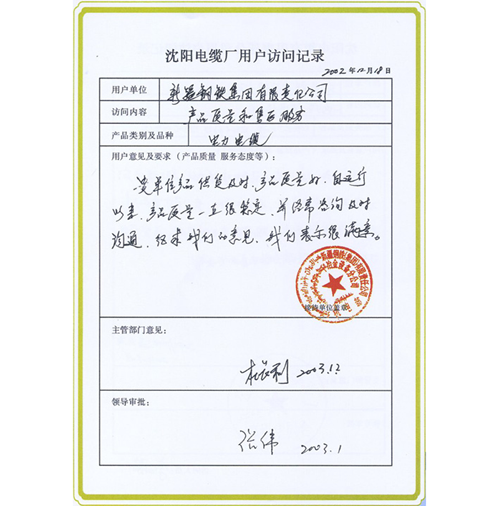 沈阳电缆厂用户访问记录
2002年12月18日
用户单位 新疆钢铁集团有限责任公司
访问内容 产品质量和售后服务
产品类别及品种 电力电缆
用户意见及要求(产品质量 服务态度等):
贵单位产品供货及时,产品质量好,自运行
以来,产品质量一直很稳定,并经常咨询及时
沟通,征求我们的意见,我们表示很满意。
单位盖章
主管部门意见:
2003.12
领导审批:
张伟 2003.1